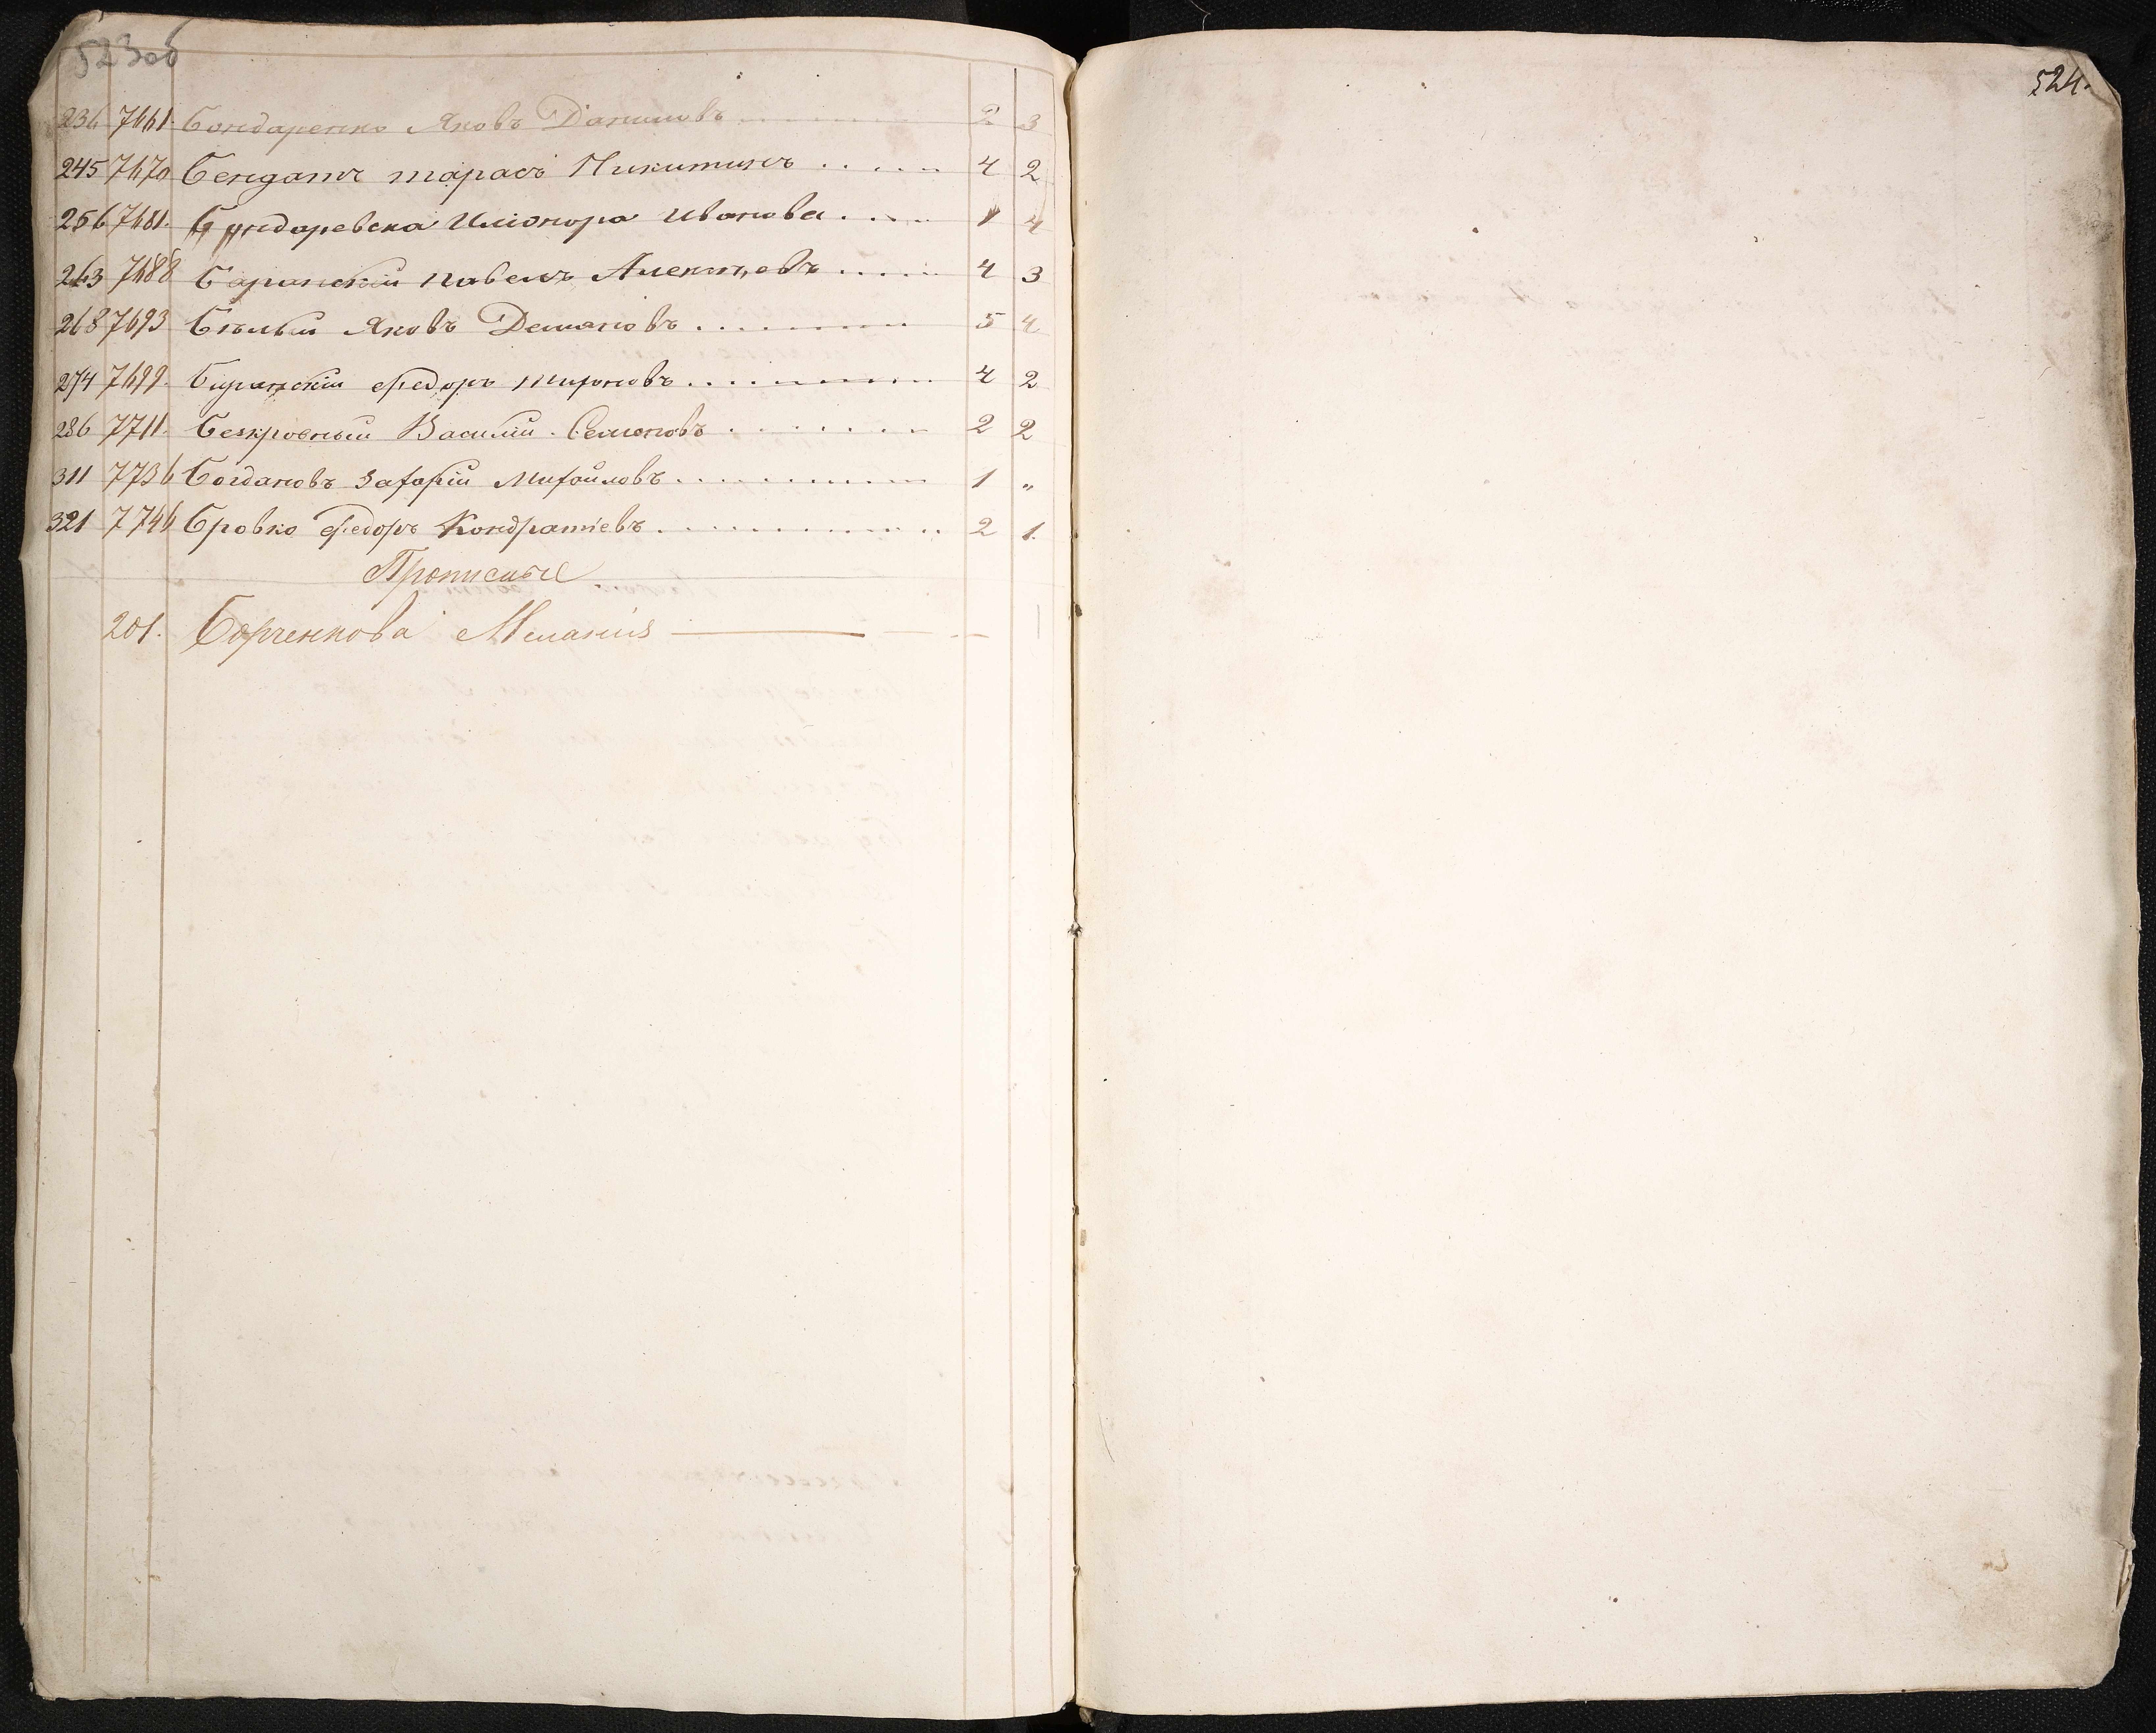 523об
236 7661. Бондаренко Яковъ Даниловъ 2 3
245 7670 Бендатъ Тарасъ Никитинъ 4 2
256 7681. Бондаревска Иванова 1 4
263 7688 Баранскій Павелъ 4 3
268 7693 Бѣлый Яковъ Демяновъ 5 4
274 7699. Федоръ Мироновъ 4 2
286 7711. Безкровный Василій Семеновъ 2 2
311 7736 Богдановъ Захарій Михайловъ 1 "
321 7746 Бровко Федоръ Кондратіевъ 2 1.
Прописные
201. Борченкова Меланія — — — 1
524.